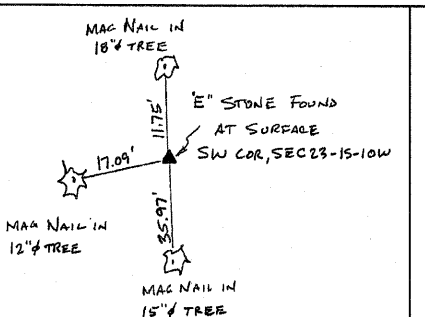 MAG NAIL IN
18"⌀ TREE
11.75'
"E" STONE FOUND
AT SURFACE
SW COR, SEC 23-1S-10W
17.09'
MAG NAIL IN
12"⌀ TREE
35.97'
MAG NAIL IN
15"⌀ TREE